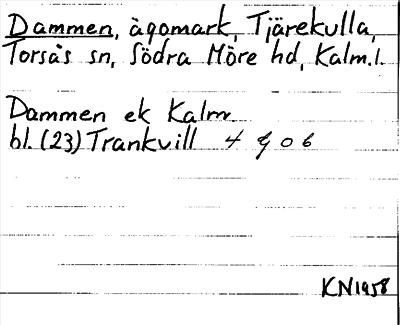 Dammen, ägomark, Tjärekulla,
Torsås sn, Södra Möre hd, Kalm.l.
Dammen ek Kalm
bl. (23) Trankvill 4 g 0 6
KN 1958